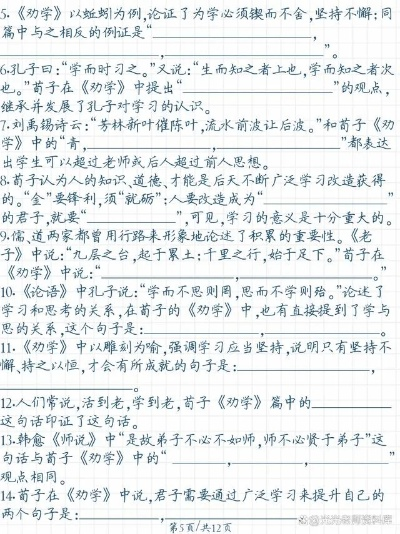 5.《劝学》以蚯蚓为例,论证了为学必须锲而不舍,坚持不懈;同
篇中与之相反的例证是“____________________,
____________________,____________________”。
6.孔子曰:“学而时习之。”又说:“生而知之者上也,学而知之者次
也。”荀子在《劝学》中提出“____________________”的观点,
继承并发展了孔子对学习的认识。
7.刘禹锡诗云:“芳林新叶催陈叶,流水前波让后波。”和荀子《劝
学》中的“青,____________________,____________________”都表达
出学生可以超过老师或后人超过前人思想。
8.荀子认为人的知识、道德、才能是后天不断广泛学习改造获得
的。“金”要锋利,须“就砺”;人要改造成为“____________________”
的君子,就要“____________________”,可见,学习的意义是十分重大的。
9.儒、道两家都曾用行路来形象地论述了积累的重要性。《老
子》中说:“九层之台,起于累土;千里之行,始于足下。”荀子在
《劝学》中说:“____________________,____________________。”
10.《论语》中孔子说:“学而不思则罔,思而不学则殆。”论述了
学习和思考的关系,在荀子的《劝学》中,也有直接提到了学与
思的关系,这个句子是:____________________,____________________。
11.《劝学》中以雕刻为喻,强调学习应当坚持,说明只有坚持不
懈、持之以恒,才会有所成就的句子是:____________________,
____________________。
12.人们常说,活到老,学到老,荀子《劝学》篇中的__________
这句话印证了这句话。
13.韩愈《师说》中“是故弟子不必不如师,师不必贤于弟子”这
句话与荀子《劝学》中的“__________,__________,__________”
观点相同。
14.荀子在《劝学》中说,君子需要通过广泛学习来提升自己的
两个句子是:__________,____________________,____________________。
第5页/共12页